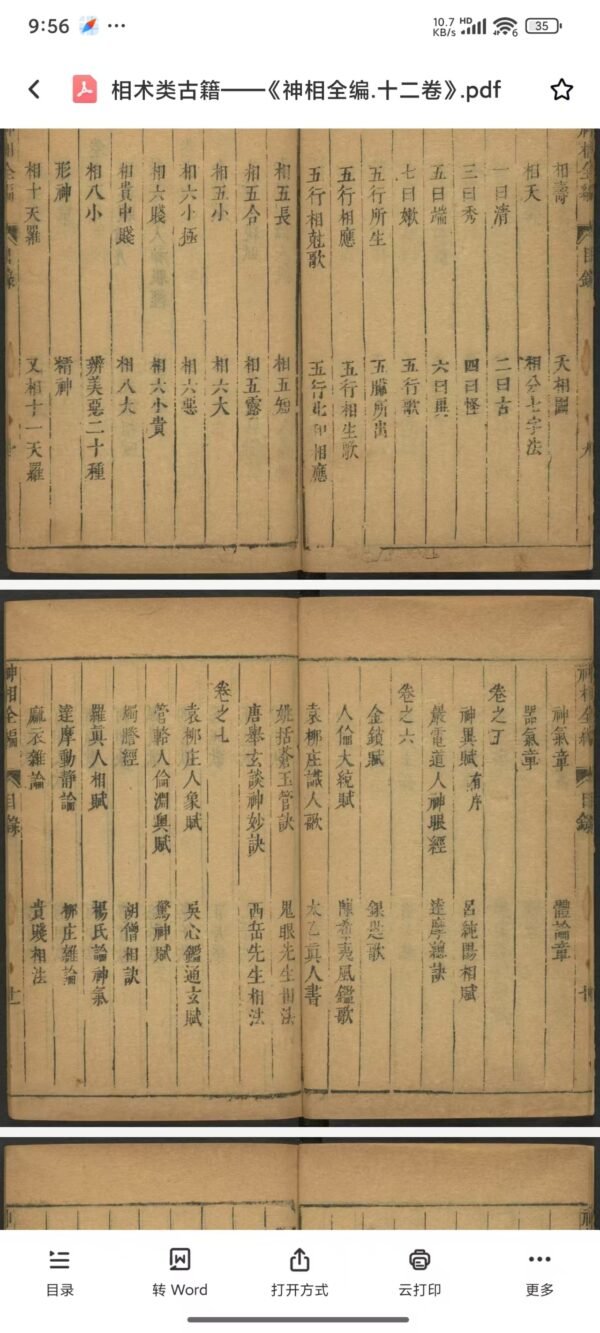 9:56
10.7
KB/s
HD
6
35
相术类古籍——《神相全编.十二卷》.pdf
相壽
天相圖
相夭
相分七字法
一曰清
二曰古
三曰秀
四曰怪
五曰端
六曰異
七曰嫩
五行歌
五行所生
五臟所出
五行相應
五行相生歌
五行相尅歌
相應
相五長
相五短
相五合
相五露
相五小
相六大
相六小極
相六惡
相六賤
相六小貴
相貴中賤
相八大
相八小
辨美惡二十種
形神
精神
相十天羅
又相十一天羅
相全編
目錄
神氣章
體論章
器氣章
卷之五
神異賦 有序
呂純陽相賦
嚴電道人神眼經
達摩總訣
卷之六
金鎖賦
銀匙歌
人倫大統賦
陳希夷風鑑歌
袁柳庄識人歌
太乙眞人書
姚括蒼玉管訣
鬼眼先生相法
唐舉玄談神妙訣
西岳先生相法
卷之七
袁柳庄人象賦
吳心鑑通玄賦
管輅人倫淵奧賦
驚神賦
燭膽經
胡僧相訣
羅眞人相賦
楊氏論神氣
達摩動靜論
柳庄雜論
麻衣雜論
貴賤相法
神相全編
目錄
十一
目录
转 Word
打开方式
云打印
更多